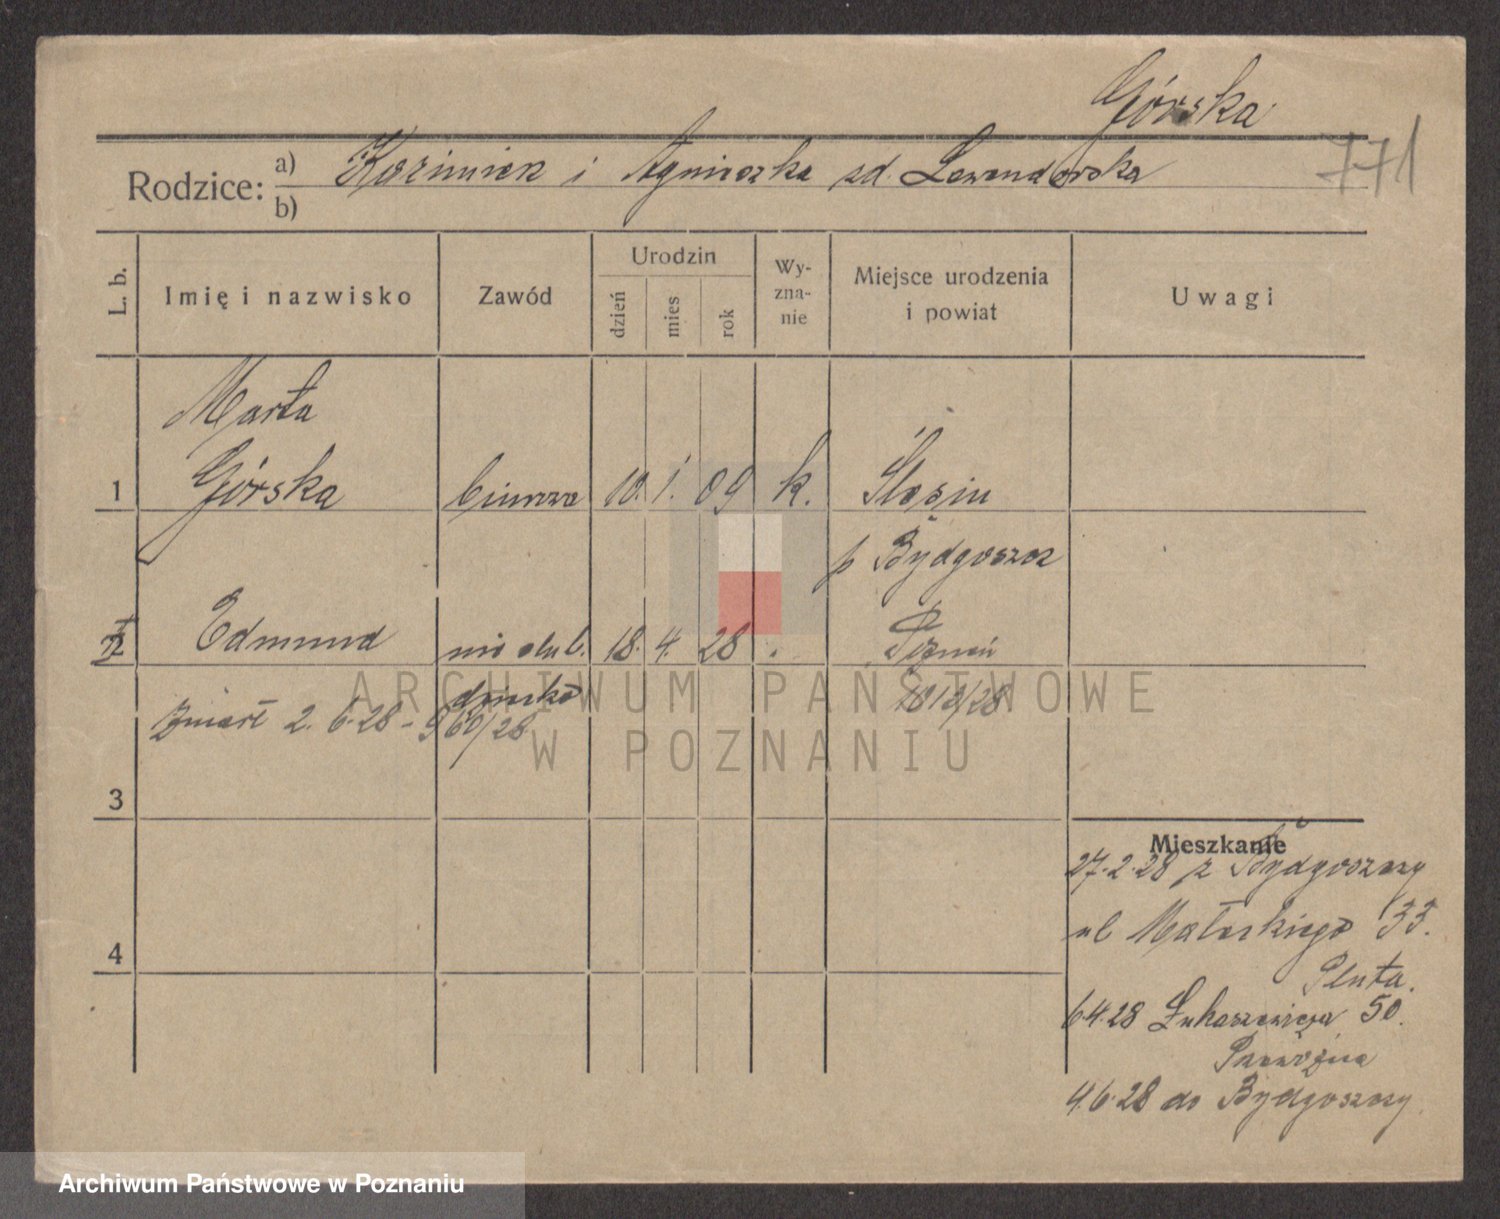 Górska
771
Rodzice: a) Kazimierz i Agnieszka zd. Lewandowska
b)
L. b.
Imię i nazwisko
Zawód
Urodzin
dzień
mies
rok
Wy-
zna-
nie
Miejsce urodzenia
i powiat
Uwagi
Marta
1 Górska biurowa 10. 1. 09 k. Slesin
p Bydgoszcz
2 Edmund nieślub. 18. 4. 28 Poznań
dziecko 1012/28
Zmarł 2. 6. 28 - 960/28
3
Mieszkanie
27.2.28 z Bydgoszczy
ul Małeckiego 33.
Pluta.
4
6.4.28 Łukaszewicza 50.
4.6.28 do Bydgoszczy
ARCHIWUM PAŃSTWOWE
W POZNANIU
Archiwum Państwowe w Poznaniu